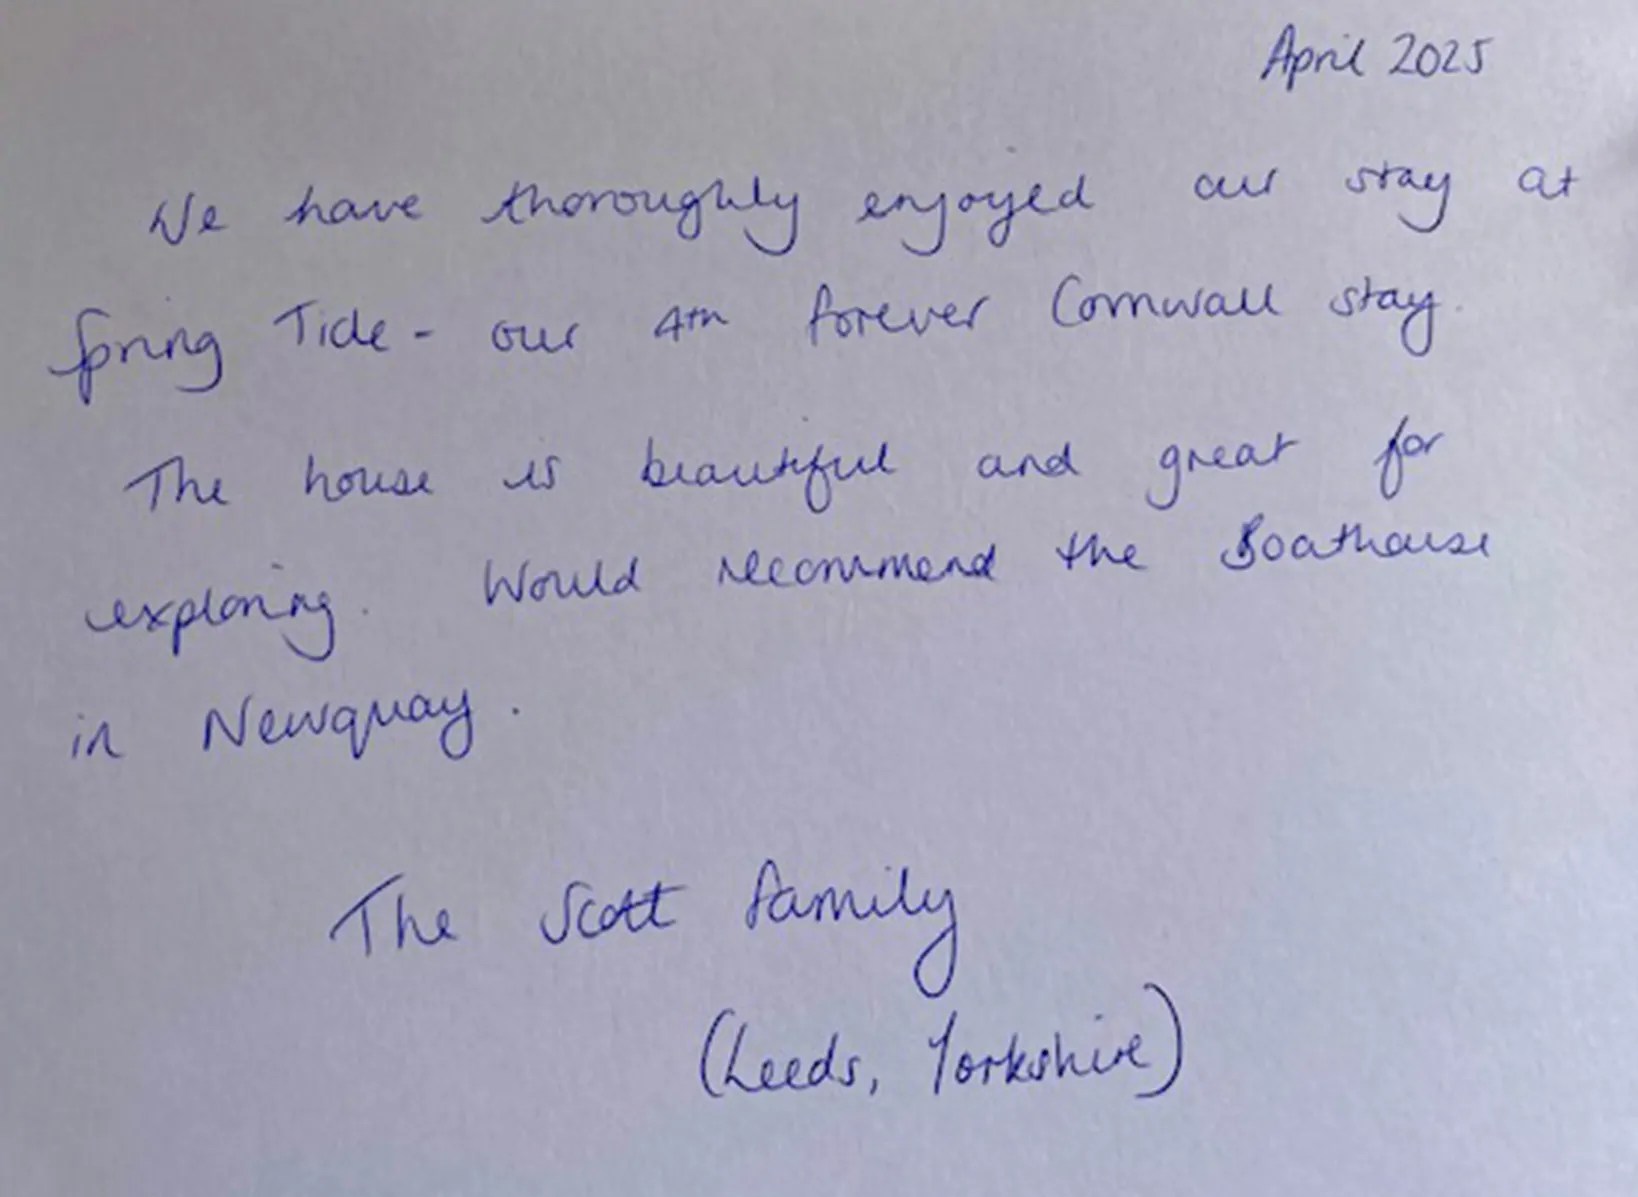 April 2025
We have thoroughly enjoyed our stay at
Spring Tide - our 4th forever Cornwall stay.
The house is beautiful and great for
exploring. Would recommend the Boathouse
in Newquay.
The Scott family
(Leeds, Yorkshire)